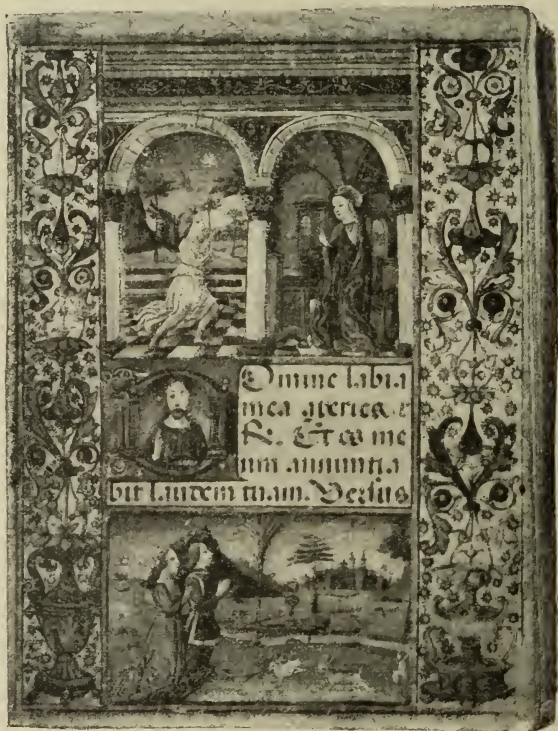 Omine labia
mea aperies. e
R. Et os me
um annuntia
bit laudem tuam. Versus